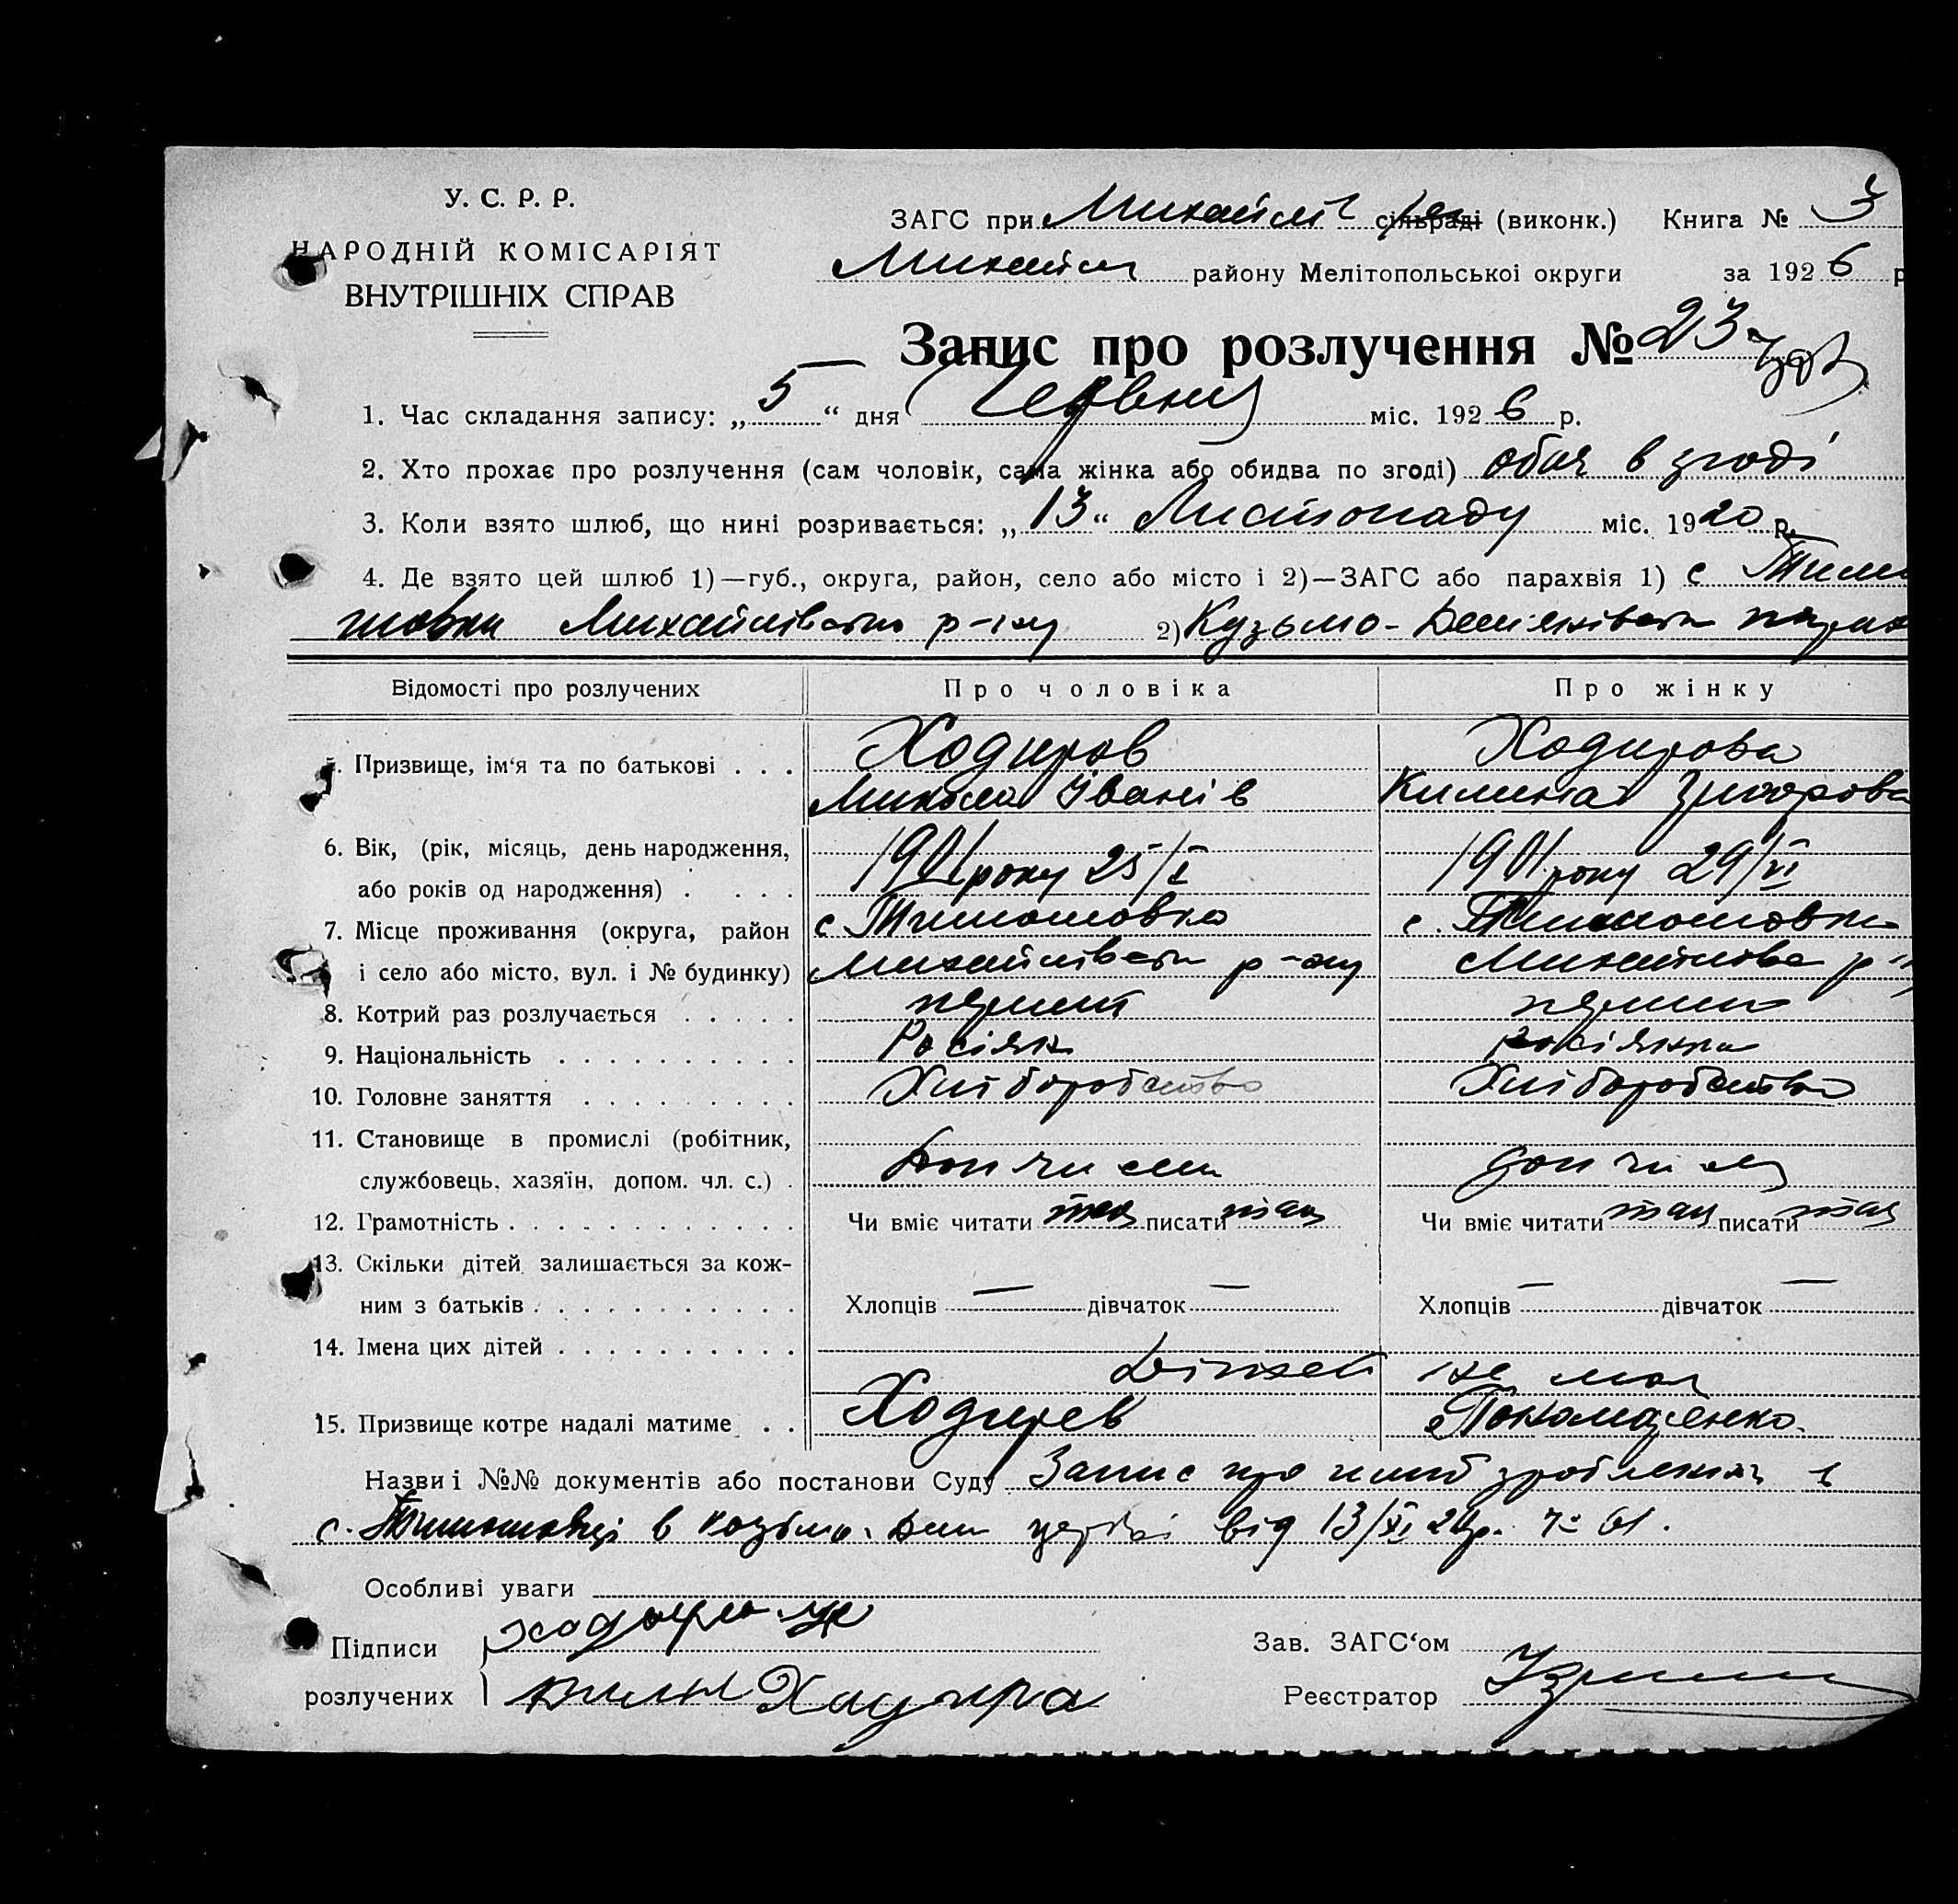 У. С. Р. Р.
НАРОДНІЙ КОМІСАРІЯТ
ВНУТРІШНІХ СПРАВ
ЗАГС при Михайлів сільраді (виконк.) Книга № 3
Михайлів району Мелітопольськоі округи за 1926 р
Запис про розлучення № 23
1. Час складання запису: „5“ дня Червня міс. 1926 р.
2. Хто прохає про розлучення (сам чоловік, сама жінка або обидва по згоді) обоя в згоді
3. Коли взято шлюб, що нині розривається: „13“ Листопаду міс. 1920 р.
4. Де взято цей шлюб 1)—губ., округа, район, село або місто і 2)—ЗАГС або парахвія 1) с Тимо
шовки Михайлівськ р-ну 2) Кузьмо-Демянівськ парах
Відомості про розлучених Про чоловіка Про жінку
Призвище, ім‘я та по батькові . . . Ходирів Ходирова
Микола Іванів Килина Григорова
6. Вік, (рік, місяць, день народження,
або років од народження) . . . . 1901 року 25/I 1901 року 29/VI
7. Місце проживання (округа, район с Тимошовка с. Тимошовка
і село або місто, вул. і № будинку) Михайлівськ р-ну Михайлівс р-н
8. Котрий раз розлучається . . . . . перший перший
9. Національність . . . . . . . . . . Росіян росіянка
10. Головне заняття . . . . . . . . . Хліборобство Хліборобство
11. Становище в промислі (робітник,
службовець, хазяїн, допом. чл. с.) . доп чл см доп чл см
12. Грамотність . . . . . . . . . . . . . Чи вміє читати так писати так Чи вміє читати так писати так
13. Скільки дітей залишається за кож-
ним з батьків . . . . . . . . . . . Хлопців — дівчаток — Хлопців — дівчаток —
14. Імена цих дітей . . . . . . . . . .
Дітей не має
15. Призвище котре надалі матиме . . Ходирев Пономаренко.
Назви і №№ документів або постанови Суду Запис про шлюб зроблений в
с. Тимошовці в козьмо-Дем церкві від 13/XI 20р. № 61.
Особливі уваги
Підписи
розлучених
Зав. ЗАГС‘ом
Реєстратор